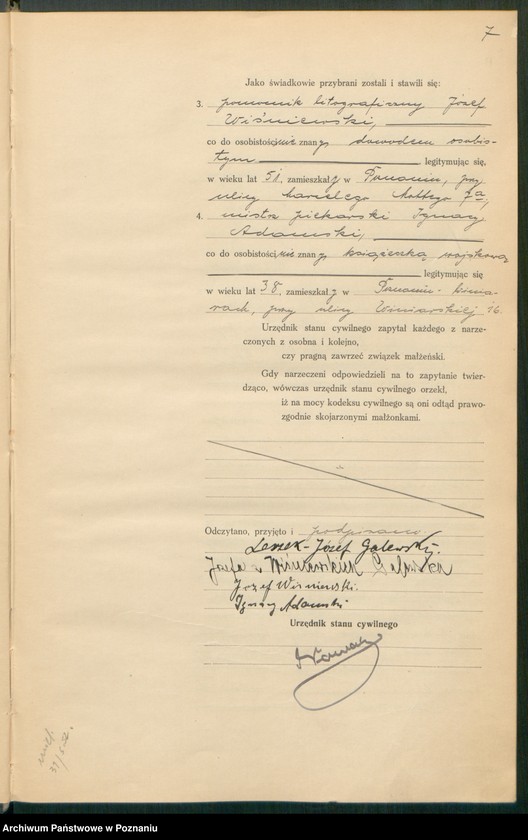 7
Jako świadkowie przybrani zostali i stawili się:
3. pomocnik litograficzny Józef
Wiśniewski,
co do osobistości nie znany dowodem osobis-
tym legitymując się,
w wieku lat 51, zamieszkały w Poznaniu, przy
ulicy Marcelego Mottego 7a,
4. mistrz piekarski Ignacy
Adamski,
co do osobistości nie znany książeczką wojskową
legitymując się
w wieku lat 38, zamieszkały w Poznaniu-Winia-
rach, przy ulicy Winiarskiej 16.
Urzędnik stanu cywilnego zapytał każdego z narze-
czonych z osobna i kolejno,
czy pragną zawrzeć związek małżeński.
Gdy narzeczeni odpowiedzieli na to zapytanie twier-
dząco, wówczas urzędnik stanu cywilnego orzekł,
iż na mocy kodeksu cywilnego są oni odtąd prawo-
zgodnie skojarzonymi małżonkami.
Odczytano, przyjęto i podpisano
Leszek-Józef Galewski.
Józefa z Wiśniewskich Galewska
Józef Wiśniewski.
Ignacy Adamski
Urzędnik stanu cywilnego
Archiwum Państwowe w Poznaniu